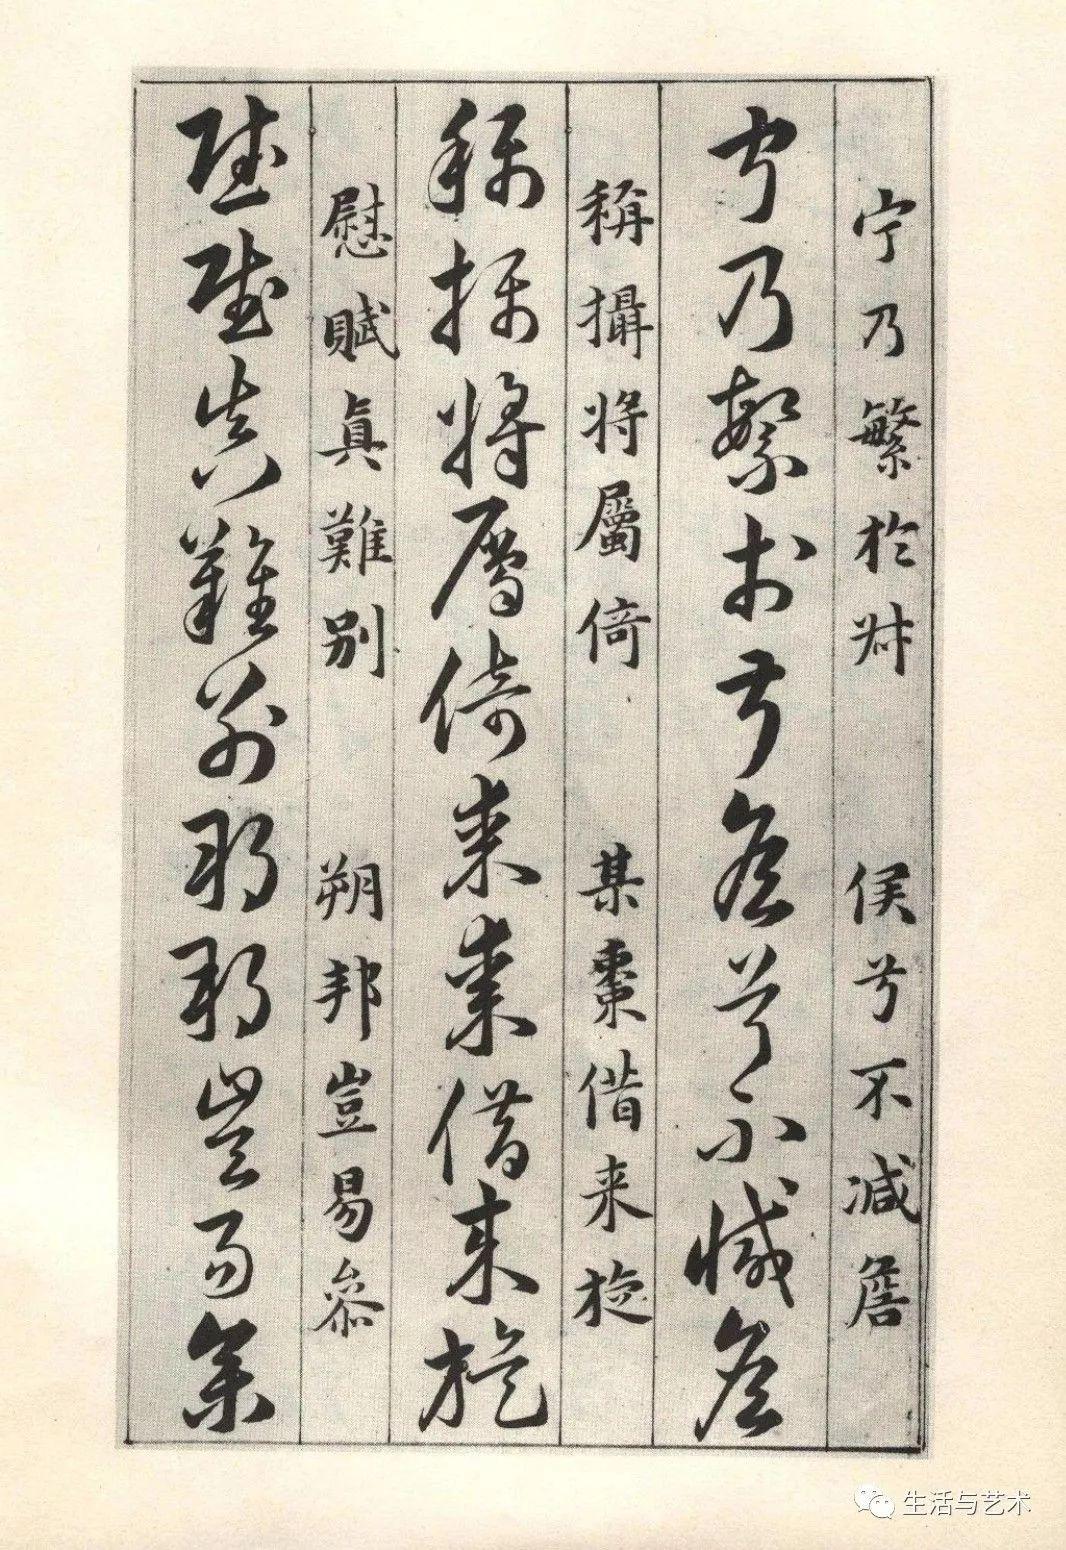 宁乃繁於叔 侯兮不減詹
宁乃繁於叔侯兮不減詹
稱攝将屬倚 某棗借来旋
稱攝将屬倚某棗借来旋
慰賦真難别 朔邦豈易叅
慰賦真難别朔邦豈易叅
生活与艺术